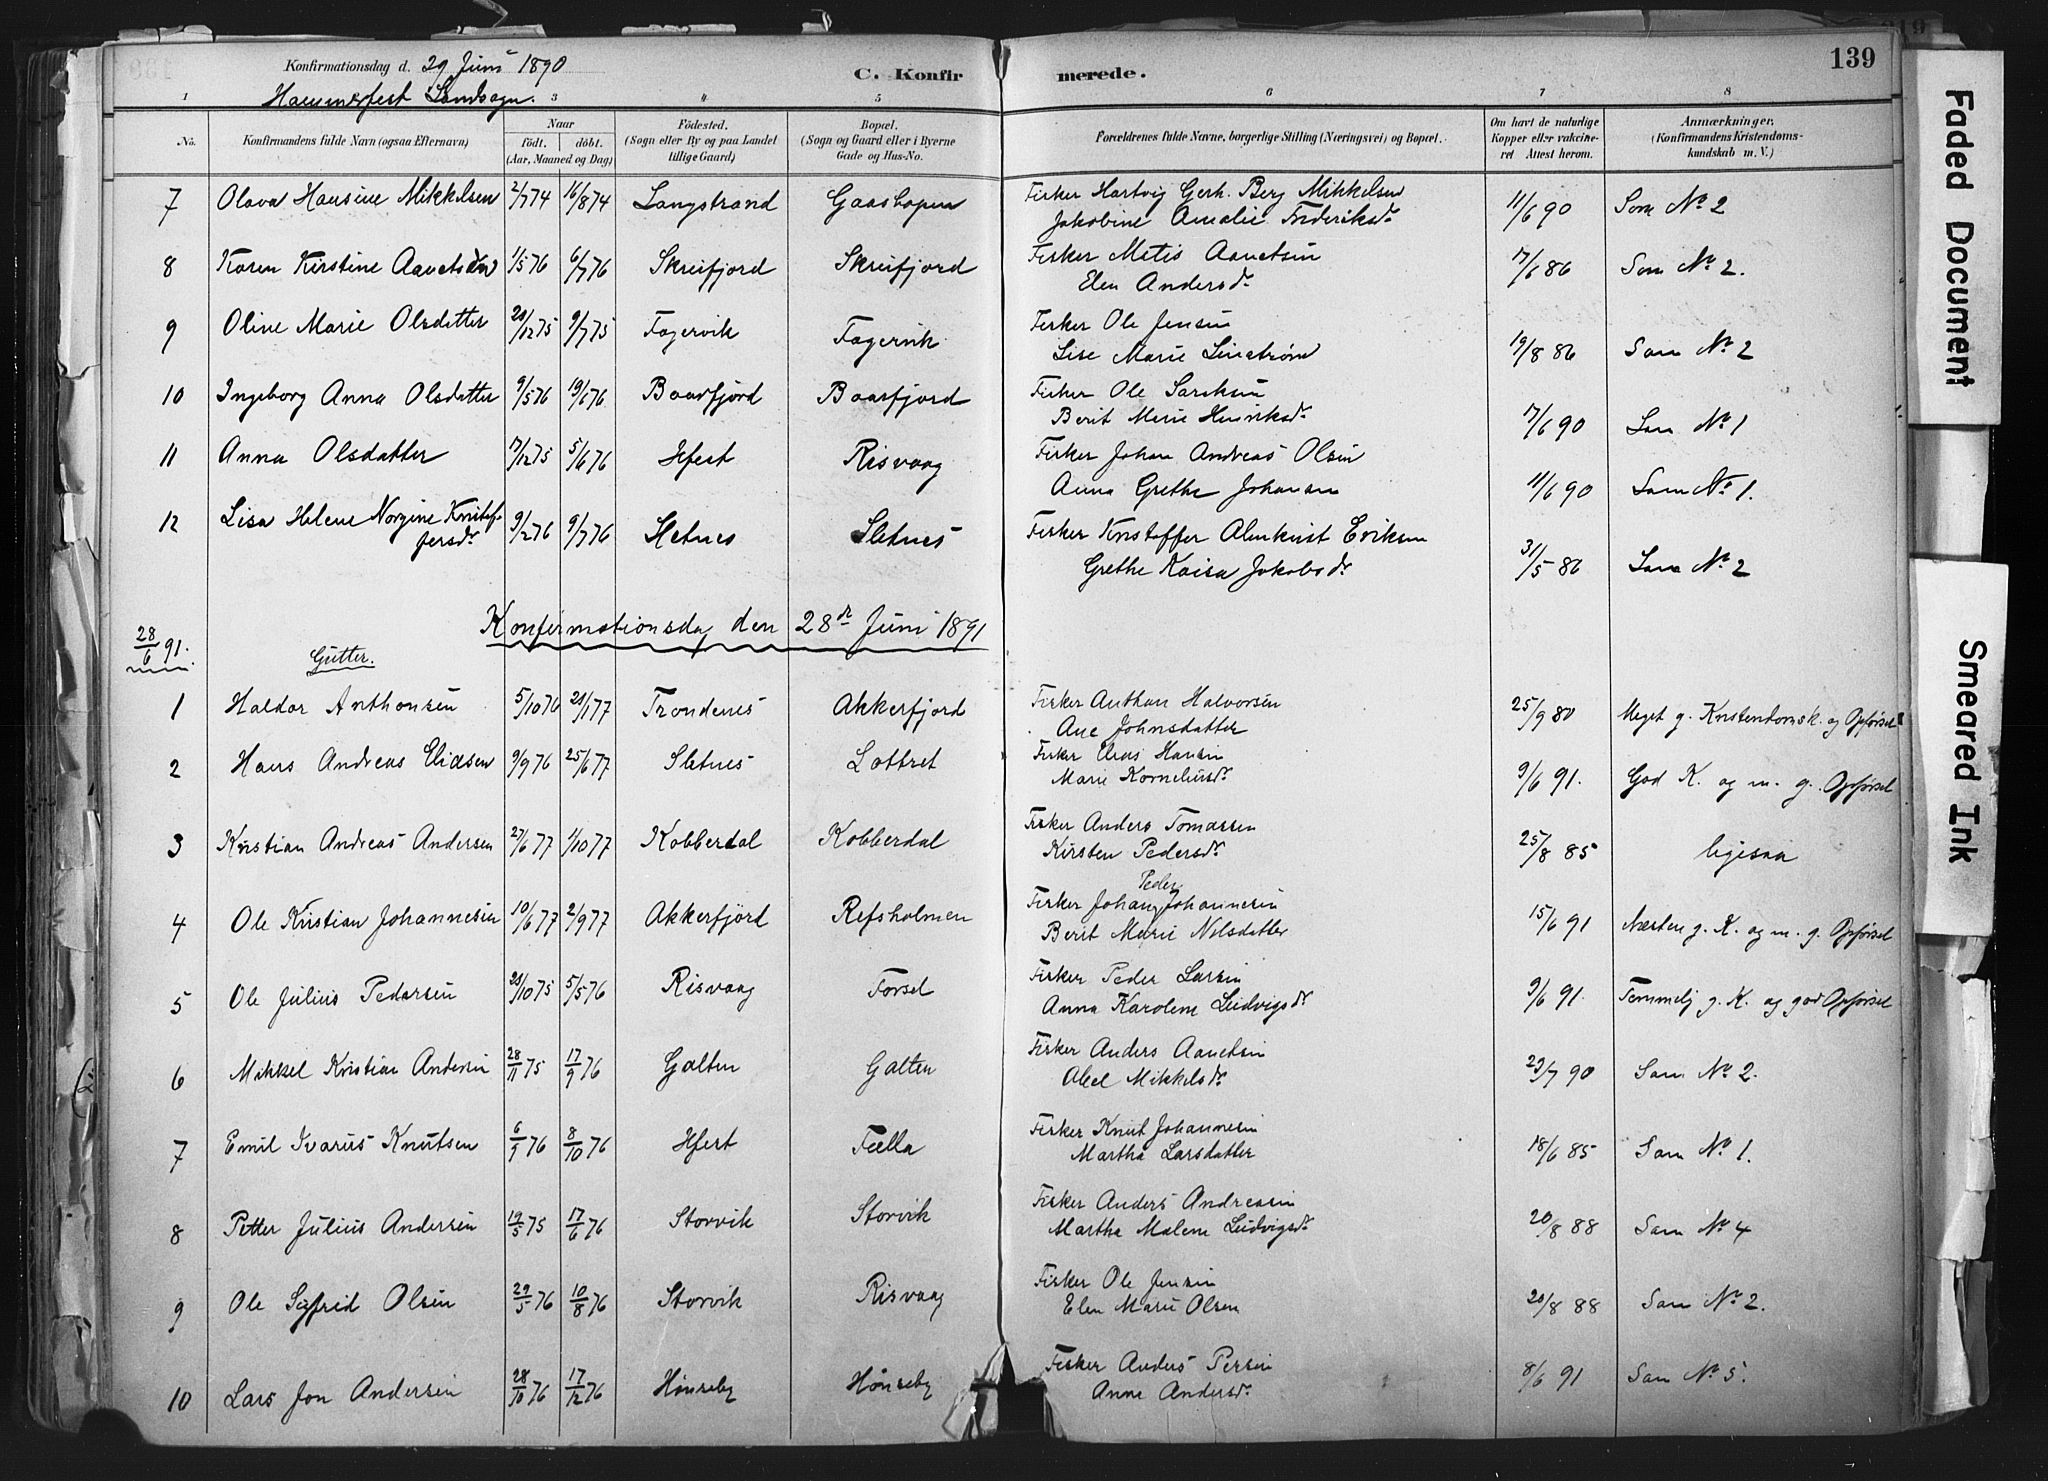 139
Konfirmationsdag d. 29 Juni 1890
C. Konfirmerede.
Hammerfest Landsogn.
1 3 4 5 6 7 8
No.
Konfirmandens fulde Navn (ogsaa Efternavn)
Naar
født. døbt.
(Aar, Maaned og Dag)
Fødested.
(Sogn eller By og paa Landet tillige Gaard)
Bopæl.
(Sogn og Gaard eller i Byerne Gade og Hus-No.
Forældrenes fulde Navne, borgerlige Stilling (Næringsvei) og Bopæl.
Om havt de naturlige Kopper eller vakcineret Attest herom.
Anmærkninger.
(Konfirmandens Kristendomskundskab m. V.)
7 Olava Hansine Mikkelsen 2/7 74 16/8 74 Langstrand Gaashopen Fisker Hartvig Gerh. Berg Mikkelsen 11/6 90 Som No 2
Jakobine Amalie Frederiksdr
8 Karen Kirstine Aanetsen 1/5 76 6/7 76 Skreifjord Skreifjord Fisker Metis Aanetsen 17/6 86 Som No 2.
Elen Andersdr
9 Oline Marie Olsdatter 20/12 75 9/7 75 Fagervik Fagervik Fisker Ole Jensen 19/8 86 Som No 2
Lise Marie Linstrøm
10 Ingeborg Anna Olsdatter 9/5 76 19/6 76 Baarfjord Baarfjord Fisker Ole Saraksen 17/6 90 Som No 1
Berit Marie Henriksdr
11 Anna Olsdatter 17/12 75 5/6 76 Hfest Risvaag Fisker Johan Andreas Olsen 11/6 90 Som No 1.
Anna Grethe Johansen
12 Lisa Helene Norgine Kristoffersdr 9/2 76 9/7 76 Sletnes Sletnes Fisker Kristoffer Almkvist Eriksen 31/5 86 Som No 2
Grethe Kaisa Jakobsdr
28/6 91. Konfirmationsdag den 28de Juni 1891
Gutter.
1 Haldor Anthonsen 5/10 76 21/1 77 Trondenes Akkerfjord Fisker Anthon Halvorsen 25/9 80 Meget g. Kristendomsk. og Opførsel
Ane Johnsdatter
2 Hans Andreas Eliasen 9/9 76 25/6 77 Sletnes Lottret Fisker Elias Hansen 9/6 91. God K. og m. g. Opførsel
Marie Korneliusdr
3 Kristian Andreas Andersen 27/6 77 1/10 77 Kobberdal Kobberdal Fisker Anders Tomassen 25/8 85 ligesaa
Kirsten Pedersdr
4 Ole Kristian Johannesen 10/6 77 2/9 77 Akkerfjord Refsholmen Fisker Johan Peder Johannesen 15/6 91 Næsten g. K. og m. g. Opførsel
Berit Marie Nilsdatter
5 Ole Julius Pedersen 20/10 75 5/5 76 Risvaag Forsøl Fisker Peder Larsen 9/6 91. Temmelig g. K. og god Opførsel
Anna Karoline Ludvigsdr
6 Mikkel Kristian Andersen 28/11 75 17/9 76 Galten Galten Fisker Anders Aanetsen 23/7 90 Som No 2.
Abel Mikkelsdr
7 Emil Ivarus Knutsen 6/9 76 8/10 76 Hfest Fella Fisker Knut Johannesen 18/6 85 Som No 1.
Martha Larsdatter
8 Petter Julius Andersen 19/5 75 17/6 76 Storvik Storvik Fisker Anders Andresen 20/8 88 Som No 4
Martha Malene Ludvigsdr
9 Ole Sigfrid Olsen 29/5 76 10/8 76 Storvik Risvaag Fisker Ole Jensen 20/8 88 Som No 2.
Elen Marie Olsen
10 Lars Jon Andersen 28/10 76 17/12 76 Hønseby Hønseby Fisker Anders Persen 8/6 91 Som No 5.
Anne Andersdr
Faded Document
Smeared Ink